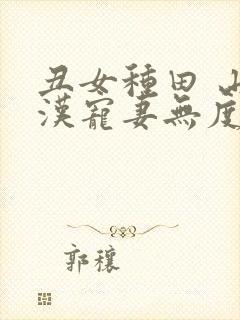 丑女種田 山
漢寵妻無度
郭穰